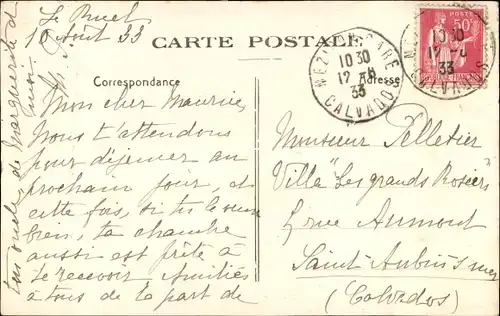 Le Bucel
10 Août 33
CARTE POSTALE
Correspondance
Adresse
Mon cher Maurice,
Nous t'attendons
pour déjeuner au
prochain jour, et
cette fois, si tu le veux
bien, ta chambre
aussi est prête à
te recevoir Amitiés
à tous de la part de
ton oncle, de Marguerite et
moi
Monsieur Pelletier
Villa "Les grands Rosiers"
rue Aumont
Saint-Aubin s/mer
(Calvados)
MEZIDON GARE
10 30
12 -8
33
CALVADOS
50c
10 30
12 -8
33
CALVADOS